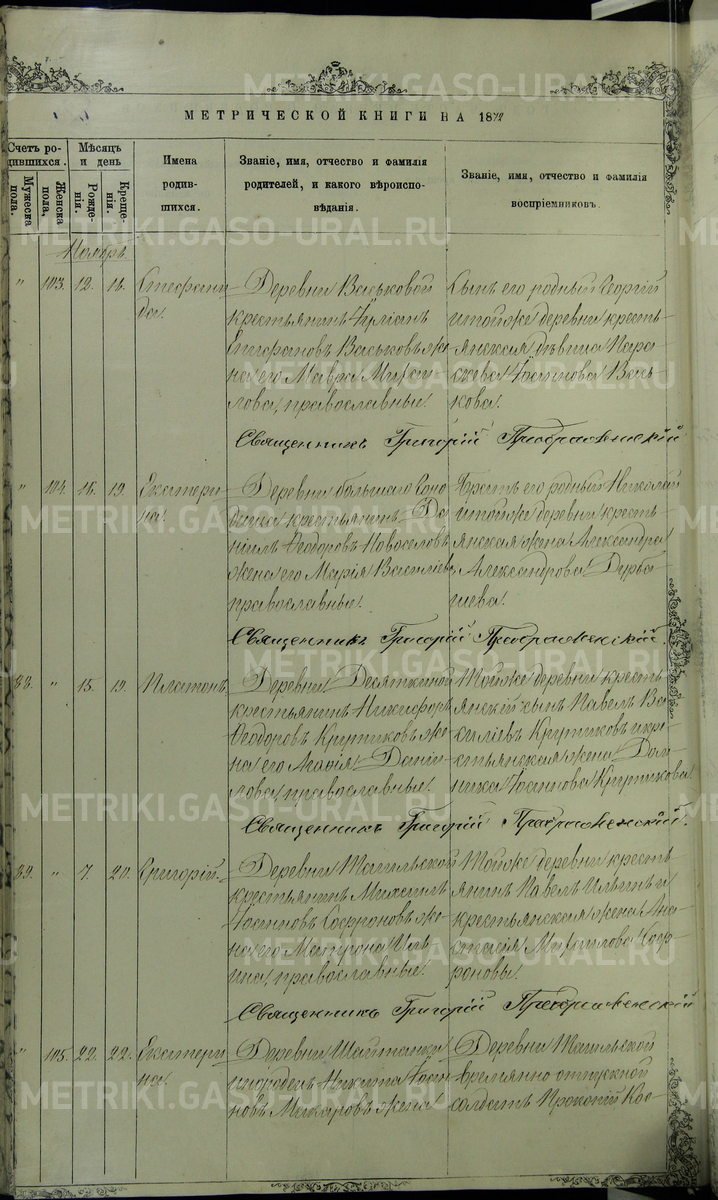 МЕТРИЧЕСКОЙ КНИГИ НА 1872
Счетъ родившихся.
Мужеска пола.
Женска пола.
Мѣсяцъ и день
Рожденія.
Крещенія.
Имена родившихся.
Званіе, имя, отчество и фамилія родителей, и какого вѣроисповѣданія.
Званіе, имя, отчество и фамилія воспріемниковъ.
METRIKI.GASO-URAL.RU
Ноябрь
" 103. 12. 14. Стефанида.
Деревни Васьковой
крестьянинъ Іуліанъ
Епифановъ Васьковъ же
на его Мавра Михаи
лова, православные.
Сынъ его родный Георгій
и тойже деревни кресть
янская дѣвица Пара
скева Іоаннова Вась
кова.
Священникъ Григорій Преображенскій
" 104. 16. 19. Екатери
на.
Деревни большаго
крестьянинъ Да
ніилъ Ѳеодоровъ Новоселовъ
жена его Марія Васильева
православные.
Братъ его родный Николай
и тойже деревни кресть
янская жена Александра
Александрова
Священникъ Григорій Преображенскій.
88. " 15. 19. Платонъ.
Деревни Десяткиной
крестьянинъ Никифоръ
Ѳеодоровъ Крутиковъ же
на его Агафія Дани
лова, православные.
Тойже деревни кресть
янскій сынъ Павелъ Ва
силіевъ Крутиковъ и кре
стьянская жена Дом
ника Іоаннова Крутикова.
Священникъ Григорій Преображенскій.
89. " 7. 20. Григорій.
Деревни Тагильской
крестьянинъ
Іоанновъ Софроновъ же
на его Матрона Иль
ина, православные.
Тойже деревни кресть
янинъ Павелъ Ильинъ и
крестьянская жена Ана
стасія Михаилова Соф
роновы.
Священникъ Григорій Преображенскій
" 105. 22. 22. Екатери
на.
Деревни Шайтанки
инородецъ Никита Іоан
новъ Макаровъ жена
Деревни Тагильской
временно отпускной
солдатъ Прокопій Кос-
METRIKI.GASO-URAL.RU